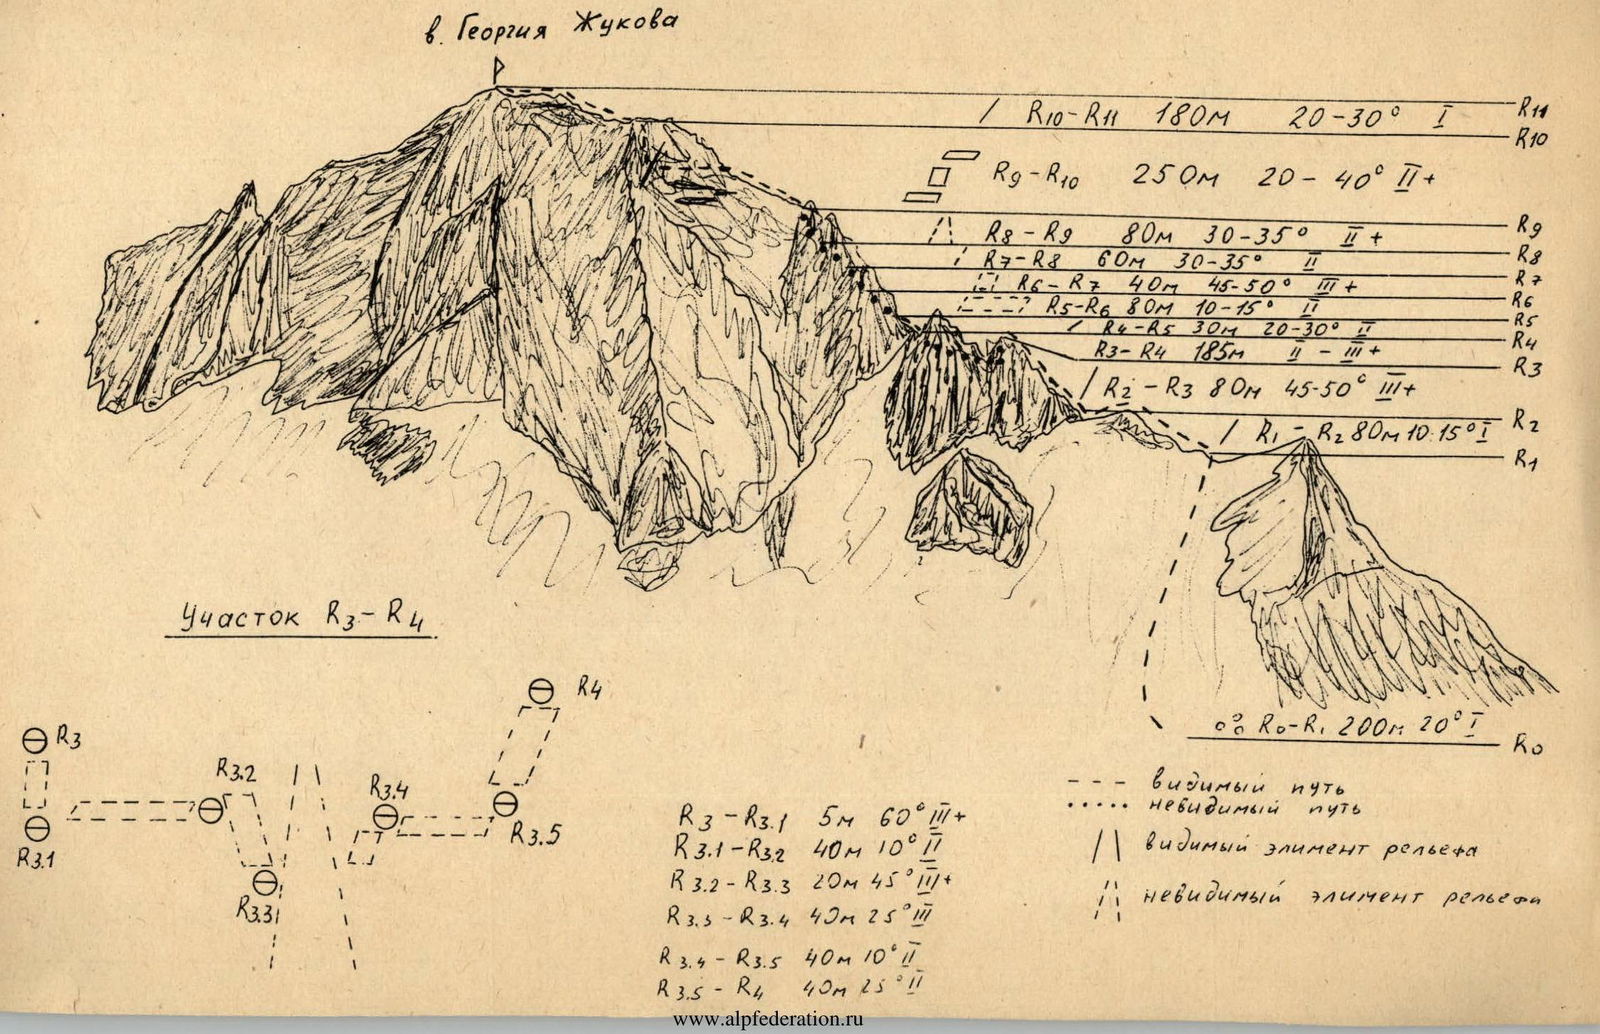 в. Георгия Жукова
R11
R10-R11 180м 20-30° I
R10
R9-R10 250м 20-40° II+
R9
R8-R9 80м 30-35° II+
R8
R7-R8 60м 30-35° II
R7
R6-R7 40м 45-50° III+
R6
R5-R6 80м 10-15° II
R5
R4-R5 30м 20-30° II
R4
R3-R4 185м II-III+
R3
R2-R3 80м 45-50° III+
R2
R1-R2 80м 10-15° I
R1
R0-R1 200м 20° I
R0
Участок R3-R4
R3
R3.1
R3.2
R3.3
R3.4
R3.5
R4
R3-R3.1 5м 60° III+
R3.1-R3.2 40м 10° II
R3.2-R3.3 20м 45° III+
R3.3-R3.4 40м 25° III
R3.4-R3.5 40м 10° II
R3.5-R4 40м 25° II
видимый путь
невидимый путь
видимый элимент рельефа
невидимый элимент рельефа
www.alpfederation.ru